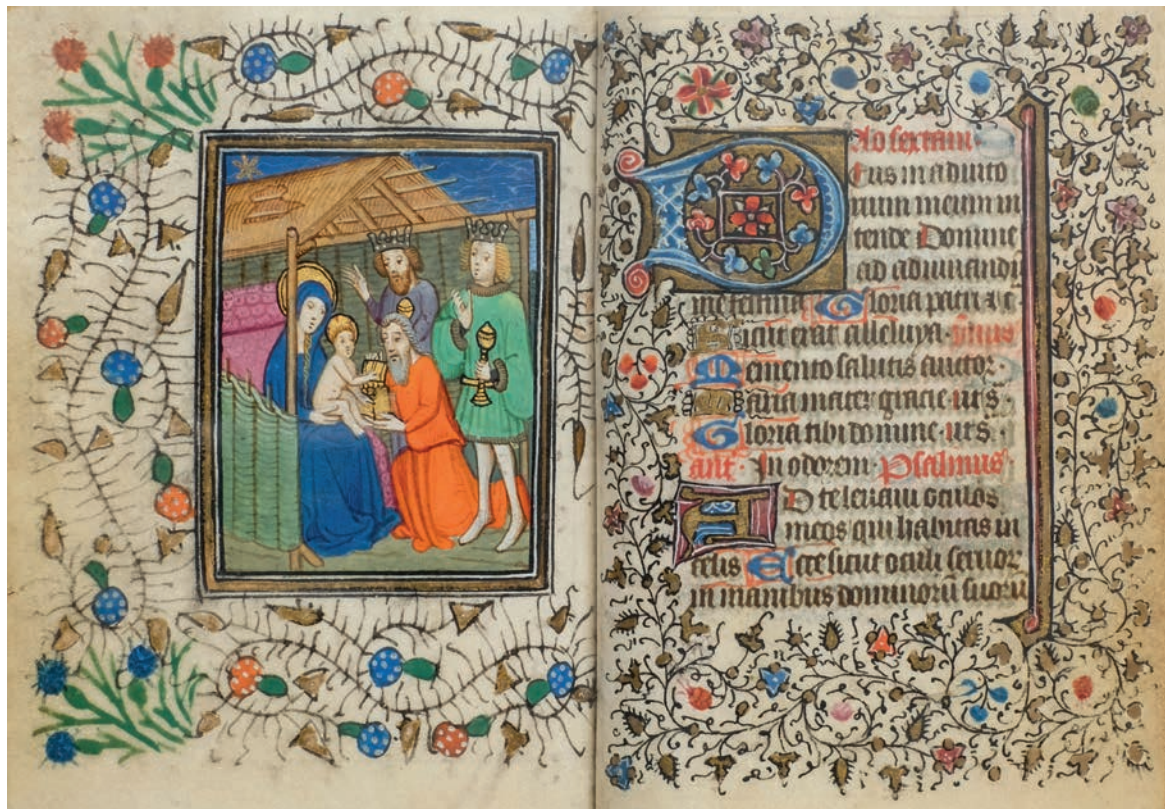 Ad sextam
Deus in adiuto
rium meum in
tende Domine
ad adiuuandū
me festina Gloria patri
Sicut erat alleluya ymnus
Memento salutis auctor
Maria mater gracie urs
Gloria tibi domine urs
ant In odorem Psalmus
AD te leuaui oculos
meos qui habitas in
celis Ecce sicut oculi seruor
in manibus dominorū suorū